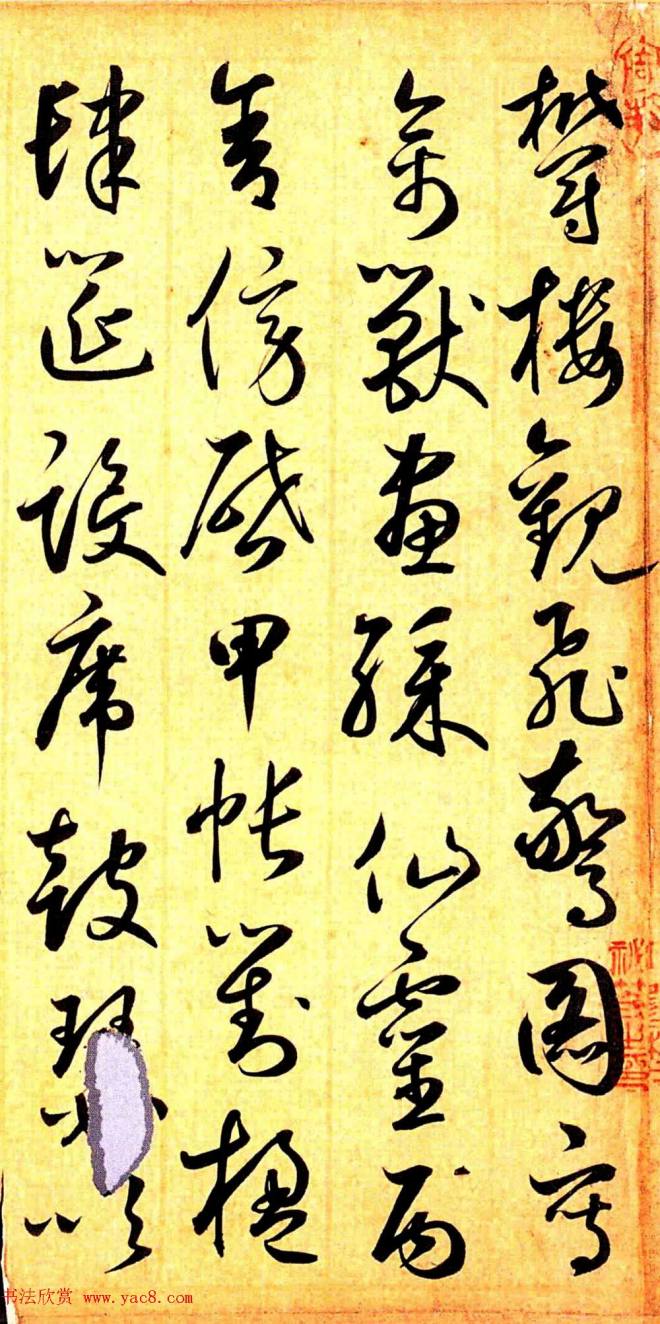 欝樓觀飛驚圖寫
禽獸畫綵仙靈丙
舍傍啓甲帳對楹
肆筵設席鼓瑟吹
书法欣赏 www.yac8.com